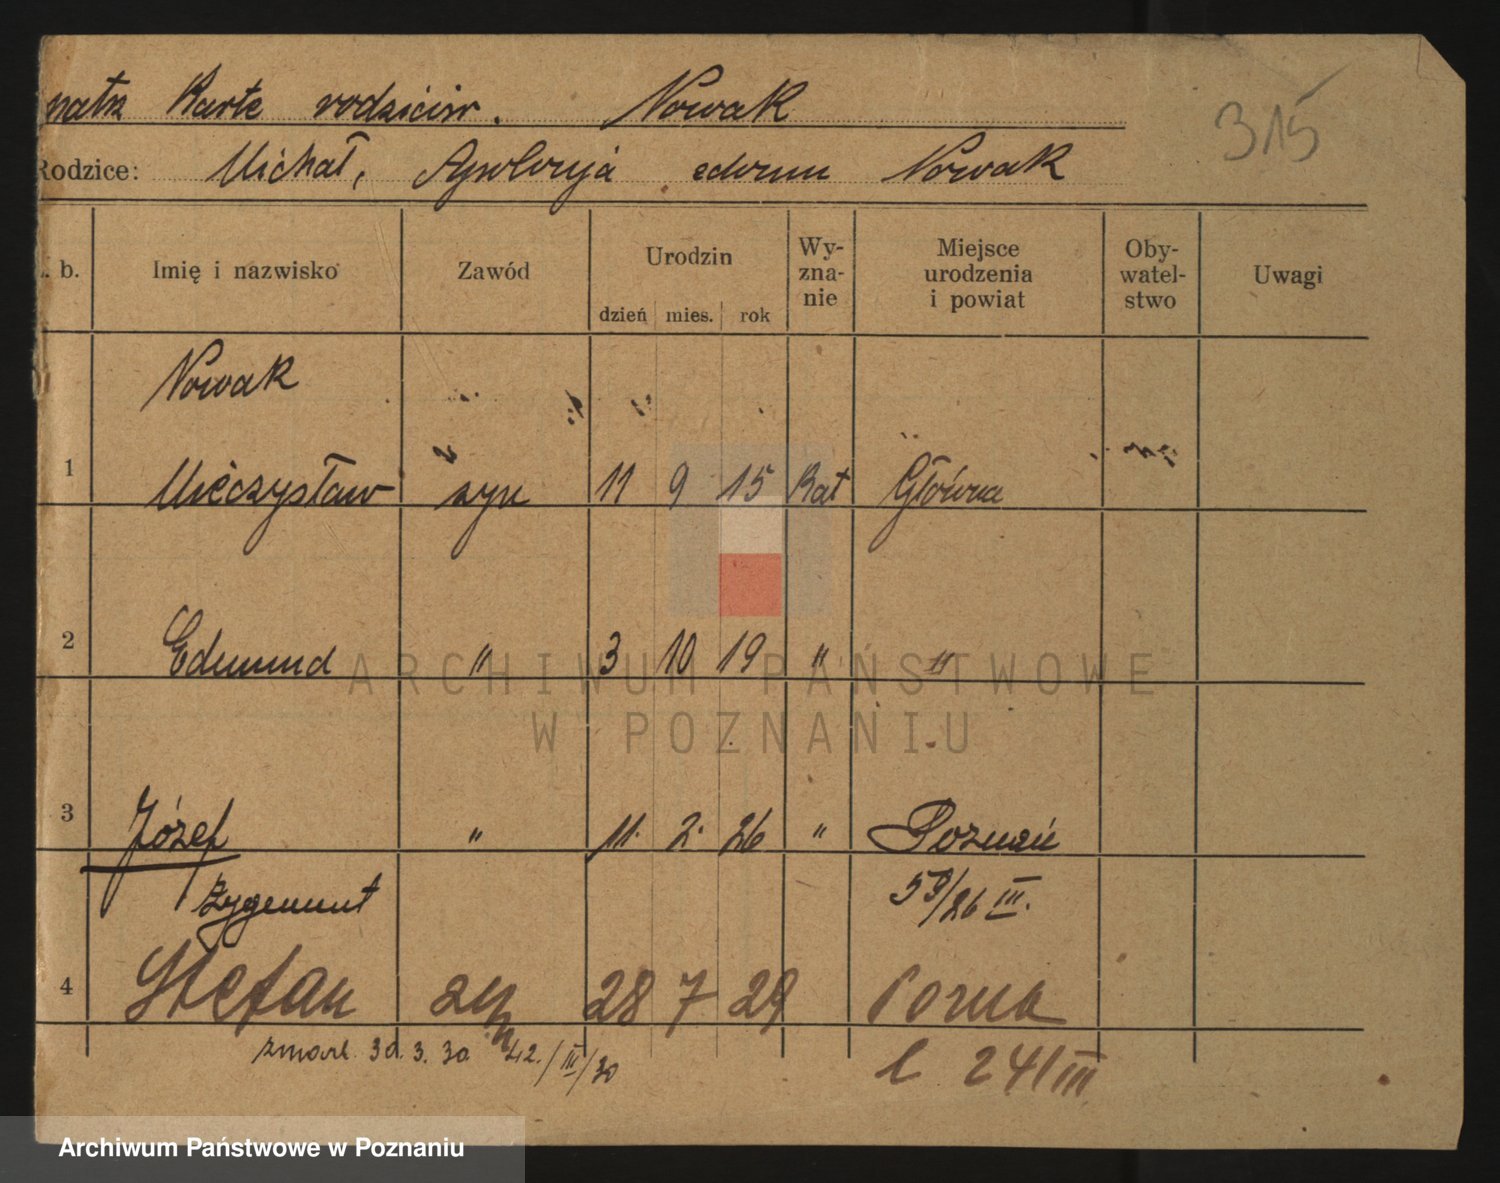 Kartę rodziców. Nowak
315
Rodzice: Michał, Apolonja edomu Nowak
b. Imię i nazwisko Zawód Urodzin dzień mies. rok Wy-zna-nie Miejsce urodzenia i powiat Oby-watel-stwo Uwagi
Nowak
1 Mieczysław syn 11 9 15 Kat Główna
2 Edmund " 3 10 19 " "
ARCHIWUM PAŃSTWOWE
W POZNANIU
3 Józef " 11. 2. 26 " Poznań
Zygmunt 59/26 III.
4 Stefan syn 28 7 29 Pozna
zmarł. 30. 3. 30 42./III/30 l 241/III
Archiwum Państwowe w Poznaniu